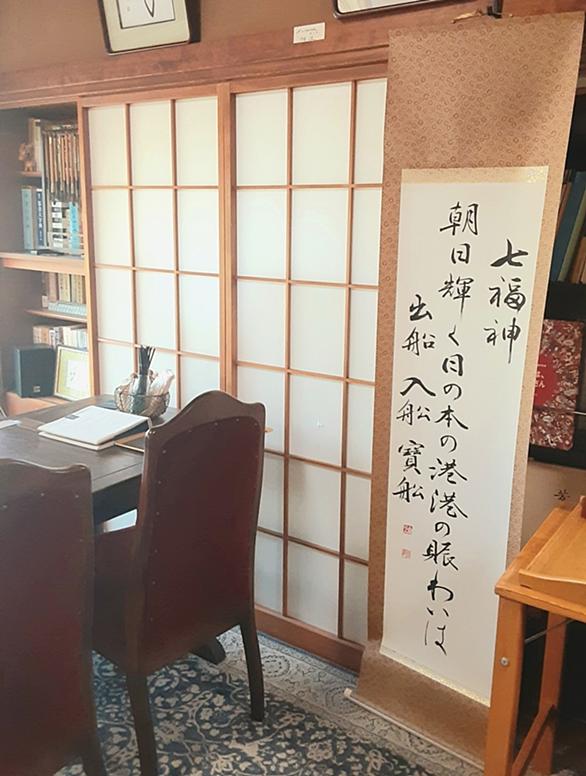 七福神
朝日輝く日の本の港港の賑わいは
出船入船寳船